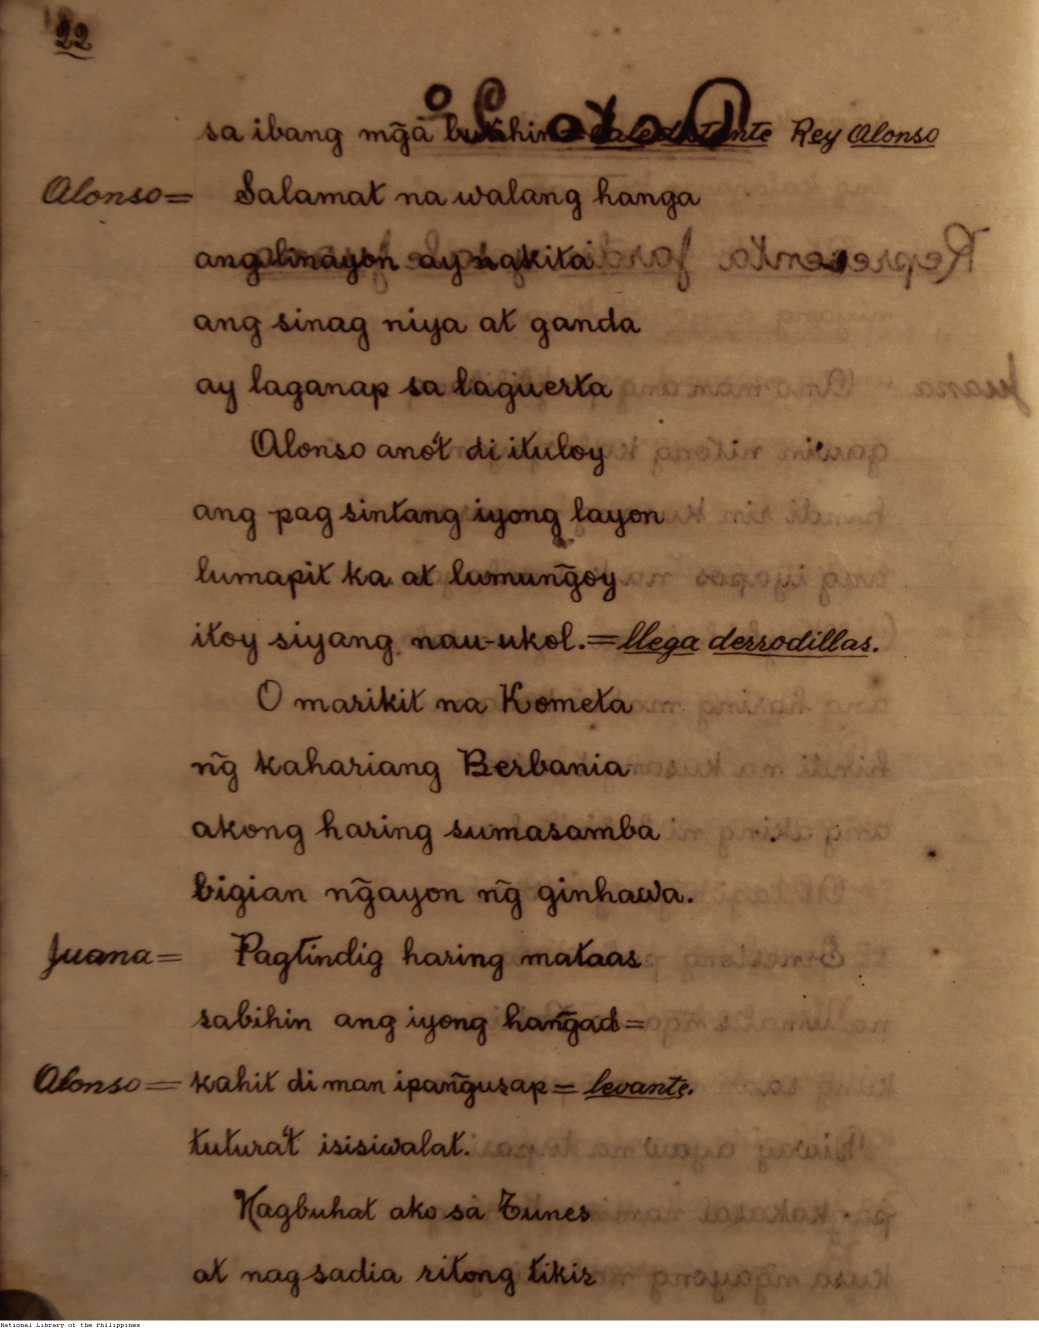 22
sa ibang mg̃a bukihin= sale distante Rey Alonso
Alonso= Salamat na walang hanga
ang linayon ay nakita
ang sinag niya at ganda
ay laganap sa laguerta
Alonso anó't di ituloy
ang pag sintang iyong layon
lumapit ka at lumung̃oy
itoy siyang nau-ukol.=llega derrodillas.
O marikit na Kometa
ng̃ kahariang Berbania
akong haring sumasamba
bigian ng̃ayon ng̃ ginhawa.
Juana= Pagtindig haring mataas
sabihin ang iyong hang̃ad=
Alonso= kahit di man ipang̃usap= levante.
tutura't isisiwalat.
Nagbuhat ako sa Tunes
at nag sadia ritong tikis
National Library of the Philippines